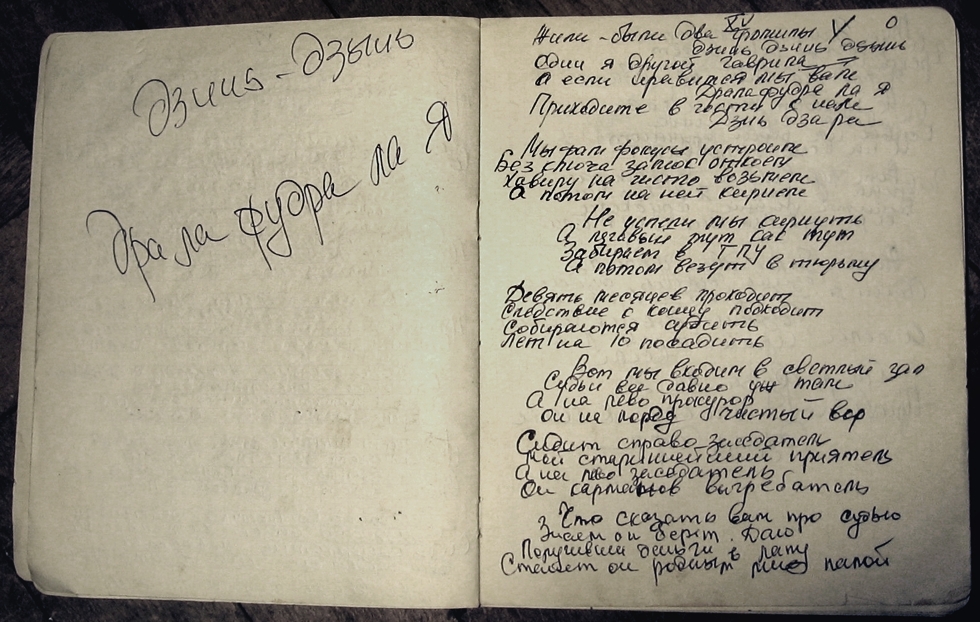 Дзинь-дзынь
Драла фудра ла Я
XV
Жили-были два Громилы
О
дзинь дзинь дзынь
Один я другой Гаврила
А если нравимся мы вам
Драла фудра ла Я
Приходите в гости к нам
Дзинь дзара
Мы вам фокусы устроим
Без ключа замок откоем
Хавиру на чисто возьмем
А потом на ней кирнем
Не успели мы кирнуть
А лягавые тут как тут
Забирают в ГПУ
А потом везут в тюрьму
Девять месяцев проходит
Следствие к концу подходит
Собираются судить
Лет на 10 посадить
Вот мы входим в светлый зал
Судьи все давно уж там
А на лево прокурор
Он на морду чистый вор
Сидит справо заседатель
Мой стариннейший приятель
А на лево заседатель
Он карманов выгребатель
Что сказать вам про судью
Знаем он берет. Даю
Получивши деньги в лапу
Станет он родным мне папой